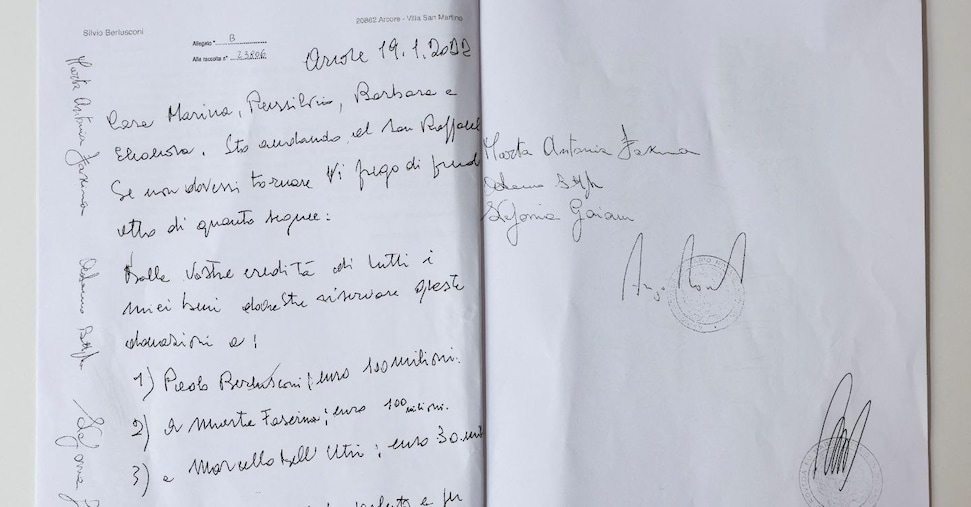 Silvio Berlusconi
20862 Arcore - Villa San Martino
Allegato "B
Alla raccolta n° 23806
Arcore 19.1.2022
Marta Antonia Fascina
Care Marina, Piersilvio, Barbara e
Eleonora. Sto andando al San Raffael
Se non dovessi tornare Vi prego di prend
atto di quanto segue:
Dalle vostre eredità di tutti i
miei beni dovreste riservare queste
donazioni a:
1) Paolo Berlusconi; euro 100 milioni.
2) a Marta Fascina; euro 100 milioni.
3) a Marcello Dell'Utri; euro 30 mil
Marta Antonia Fascina
Stefania